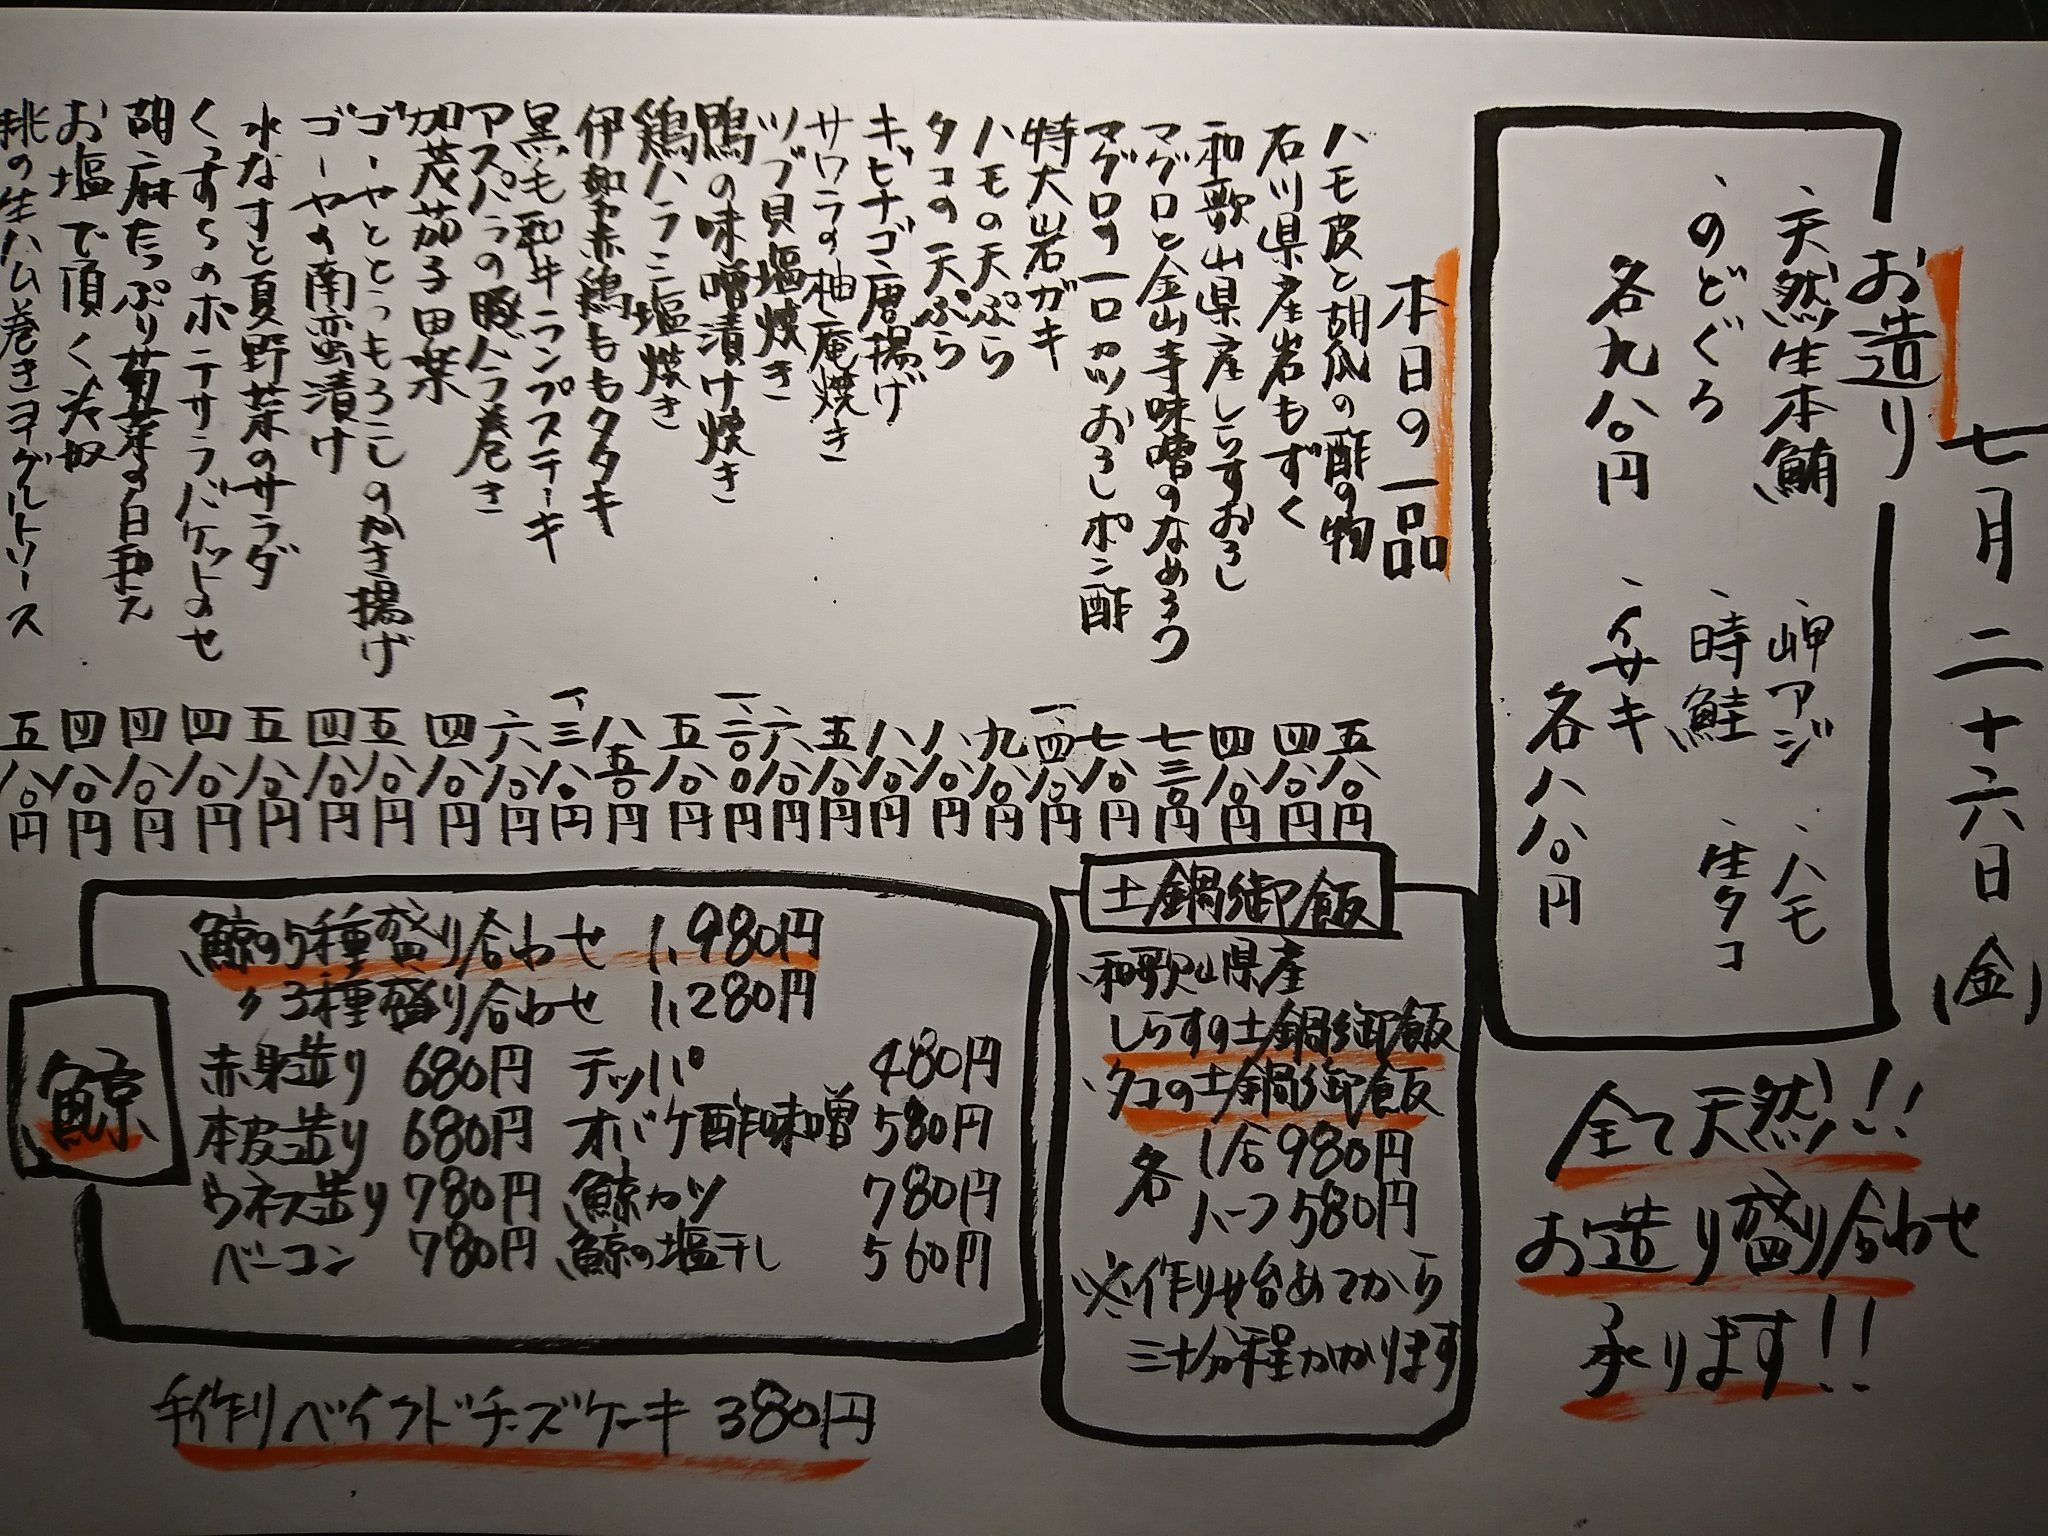 七月二十六日(金)
お造り
、天然生本鮪
、のどぐろ
各九八〇円
、岬アジ
、ハモ
、時鮭
、生タコ
、イサキ
各八八〇円
全て天然!!
お造り盛り合わせ
承ります!!
本日の一品
ハモ皮と胡瓜の酢の物 五八〇円
石川県産岩もずく 四八〇円
和歌山県産しらすおろし 四八〇円
マグロと金山寺味噌のなめろう 七三〇円
マグロの一口カツおろしポン酢 七八〇円
特大岩ガキ 一、四八〇円
ハモの天ぷら 九八〇円
タコの天ぷら 八八〇円
キビナゴ唐揚げ 八八〇円
サワラの柚庵焼き 五八〇円
ツブ貝塩焼き 六八〇円
鴨の味噌漬け焼き 一、二〇〇円
鶏ハラミ塩焼き 五八〇円
伊勢赤鶏ももタタキ 八五〇円
黒毛和牛ランプステーキ 一、三八〇円
アスパラの豚バラ巻き 六八〇円
加茂茄子田楽 四八〇円
ゴーヤととうもろこしのかき揚げ 五八〇円
ゴーヤの南蛮漬け 四八〇円
水なすと夏野菜のサラダ 五八〇円
くんすらのポテサラバケットのせ 四八〇円
胡麻たっぷり菊菜の白和え 四八〇円
お塩で頂く冷奴 四八〇円
桃の生ハム巻きヨーグルトソース 五八〇円
土鍋御飯
和歌山県産
しらすの土鍋御飯
、タコの土鍋御飯
各 1合980円
ハーフ580円
※作り始めてから
三十分程かかります
鯨
鯨の5種盛り合わせ 1,980円
〃 3種盛り合わせ 1,280円
赤身造り 680円 テッパ 480円
本皮造り 680円 オバケ酢味噌 580円
ウネス造り 780円 鯨カツ 780円
ベーコン 780円 鯨の塩干し 560円
手作りベイクドチーズケーキ 380円